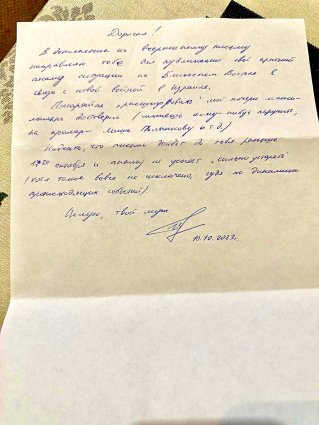 Дорогая!
В дополнение ко вчерашнему письму
направляю тебе для публикации свой краткий
анализ ситуации на Ближнем Востоке в
связи с новой войной в Израиле.
Постарайся мой почерк макси-
мально достоверно (можешь кому-нибудь поручить,
на пример - Мише и т.д.)
Надеюсь, что письмо дойдёт до тебя раньше
октября и анализ не успеет "сильно устареть"
(хотя такое вовсе не исключено, судя по динамике
происходящих событий).
Целую, твой муж
10.10.2023г.